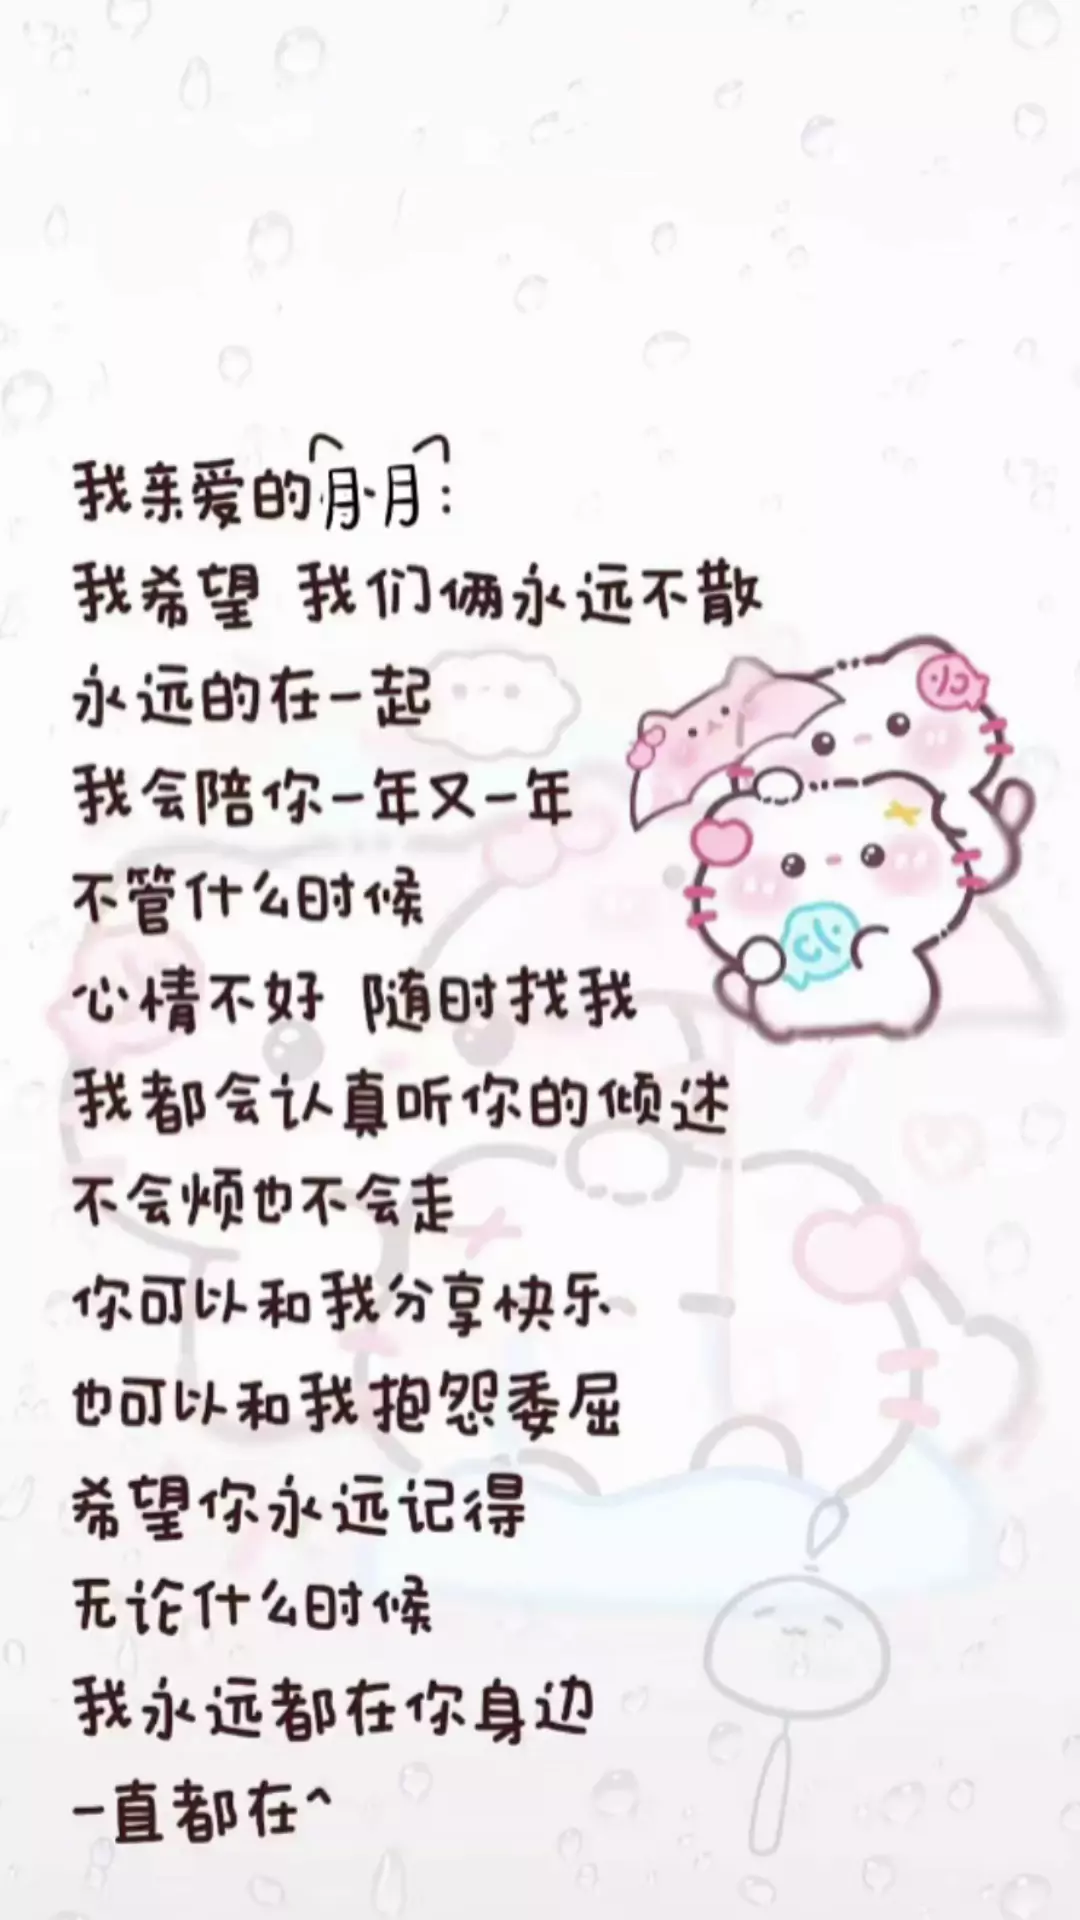 我亲爱的月月:
我希望 我们俩永远不散
永远的在一起
我会陪你一年又一年
不管什么时候
心情不好 随时找我
我都会认真听你的倾述
不会烦也不会走
你可以和我分享快乐
也可以和我抱怨委屈
希望你永远记得
无论什么时候
我永远都在你身边
一直都在^